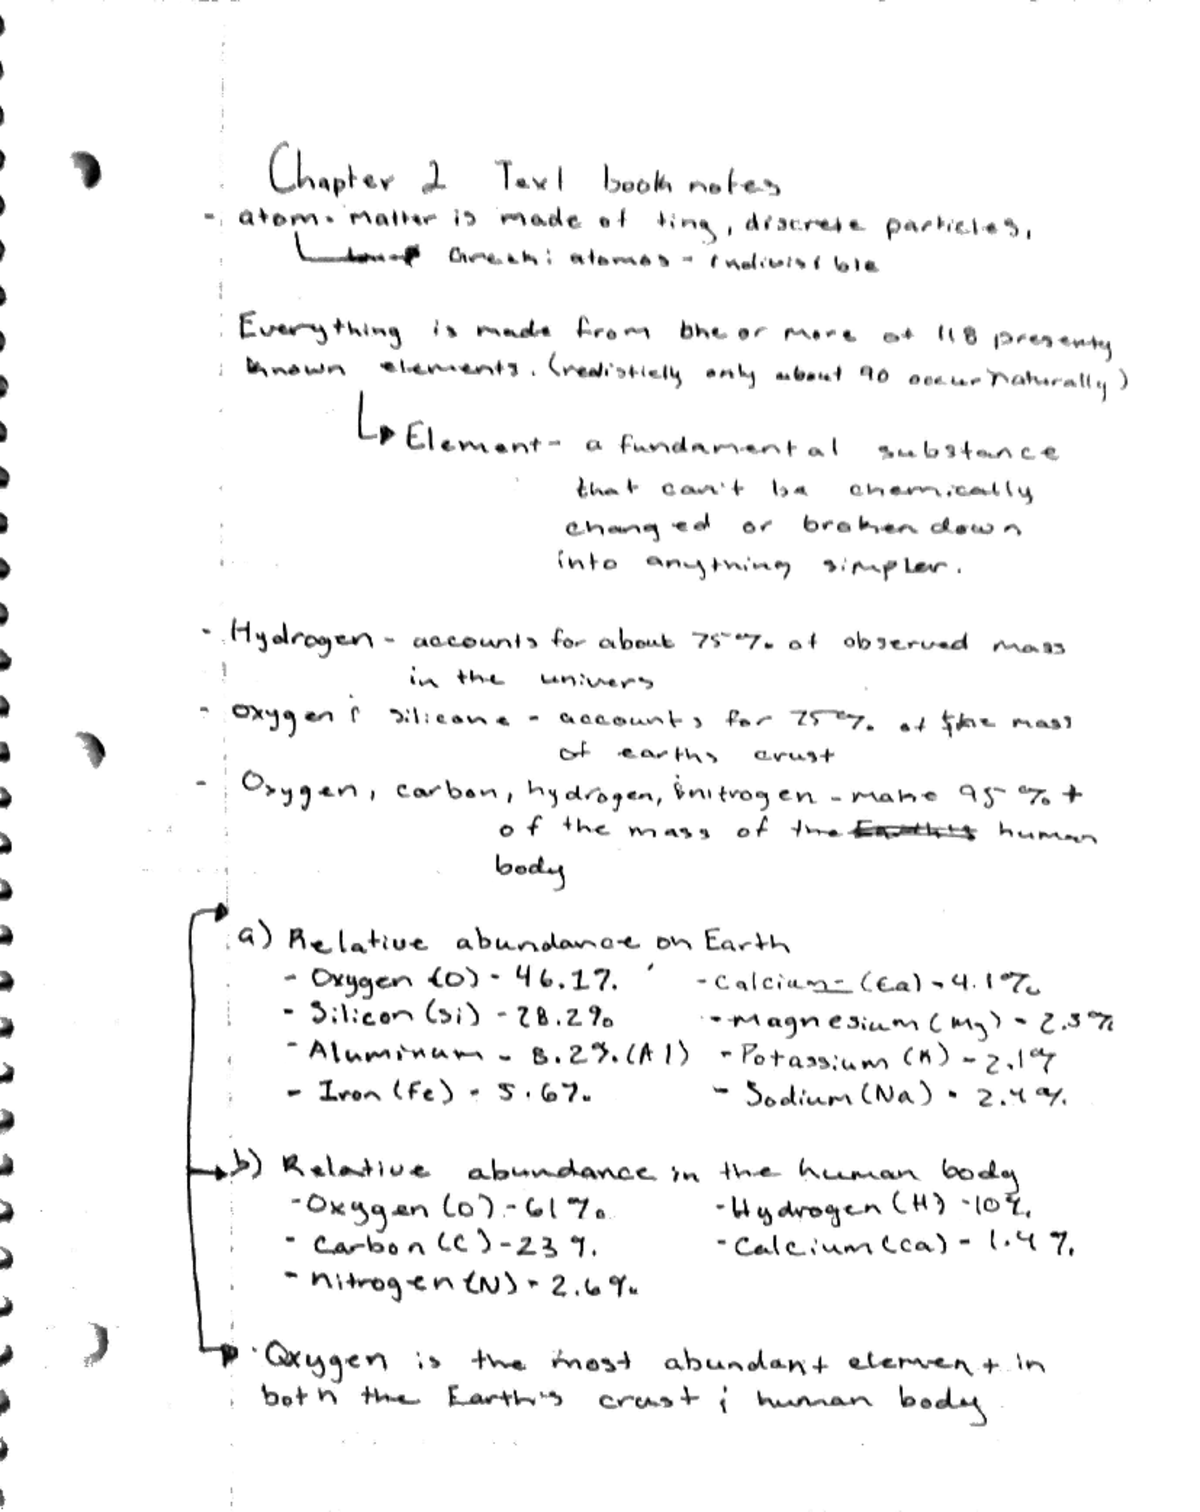 Chapter 2 Text book notes
- atom - Matter is made of tiny, discrete particles.
Greek: atomos - indivisible
Everything is made from one or more of 118 presenty
known elements. (redisticly only about 90 occur naturally)
Element - a fundamental substance
that can't be chemically
changed or broken down
into anything simpler.
- Hydrogen - accounts for about 75% of observed mass
in the univers
- Oxygen & silicone - accounts for 75% of the mass
of earths crust
- Oxygen, carbon, hydrogen, & nitrogen - make 95% +
of the mass of the Earth's human
body
a) Relative abundance on Earth
- Oxygen (O) - 46.1%. - Calcium - (Ca) - 4.1%
- Silicon (Si) - 28.2% - Magnesium (Mg) - 2.3%
- Aluminum - 8.2%. (Al) - Potassium (K) - 2.1%
- Iron (Fe) - 5.6%. - Sodium (Na) - 2.4%.
b) Relative abundance in the human body
- Oxygen (O) - 61% - Hydrogen (H) - 10%.
- Carbon (C) - 23%. - Calcium (Ca) - 1.4%.
- nitrogen (N) - 2.6%
· Oxygen is the most abundant element in
both the Earth's crust & human body